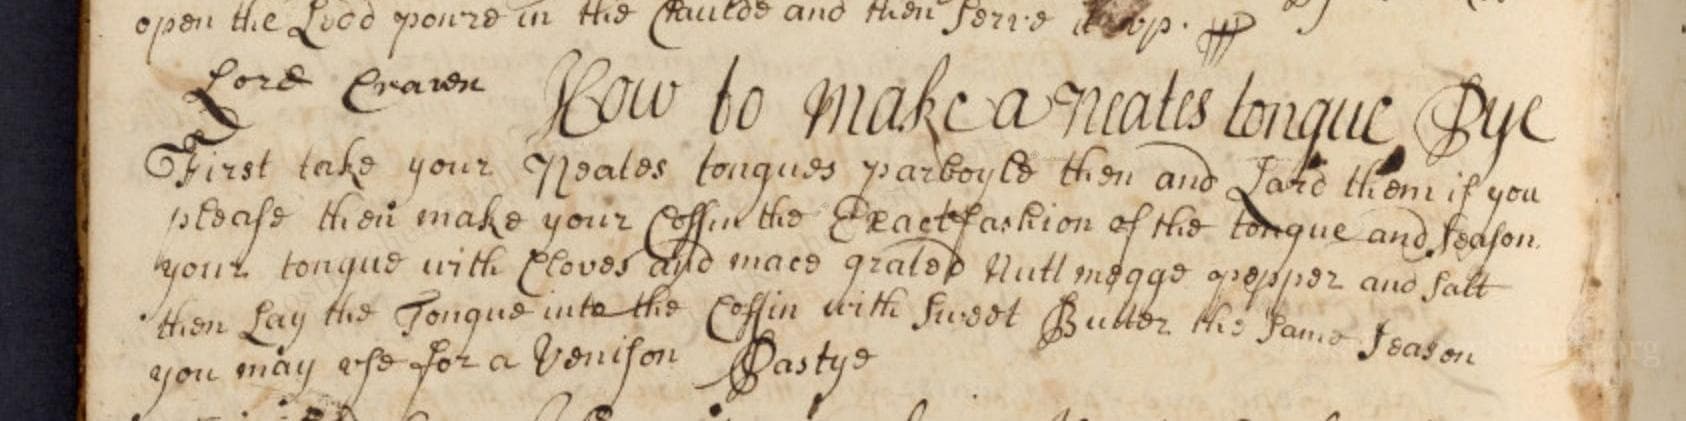 open the Lidd powre in the Caulde and then serve it up.
Lord Craven How to make a Neates tongue Pye
First take your Neates tongues parboyle then and Lard them if you
please then make your Coffin the Exact fashion of the tongue and season
your tongue with Cloves and mace grated Nuttmegge pepper and salt
then Lay the Tongue into the Coffin with sweet Butter the same season
you may use for a Venison Pastye